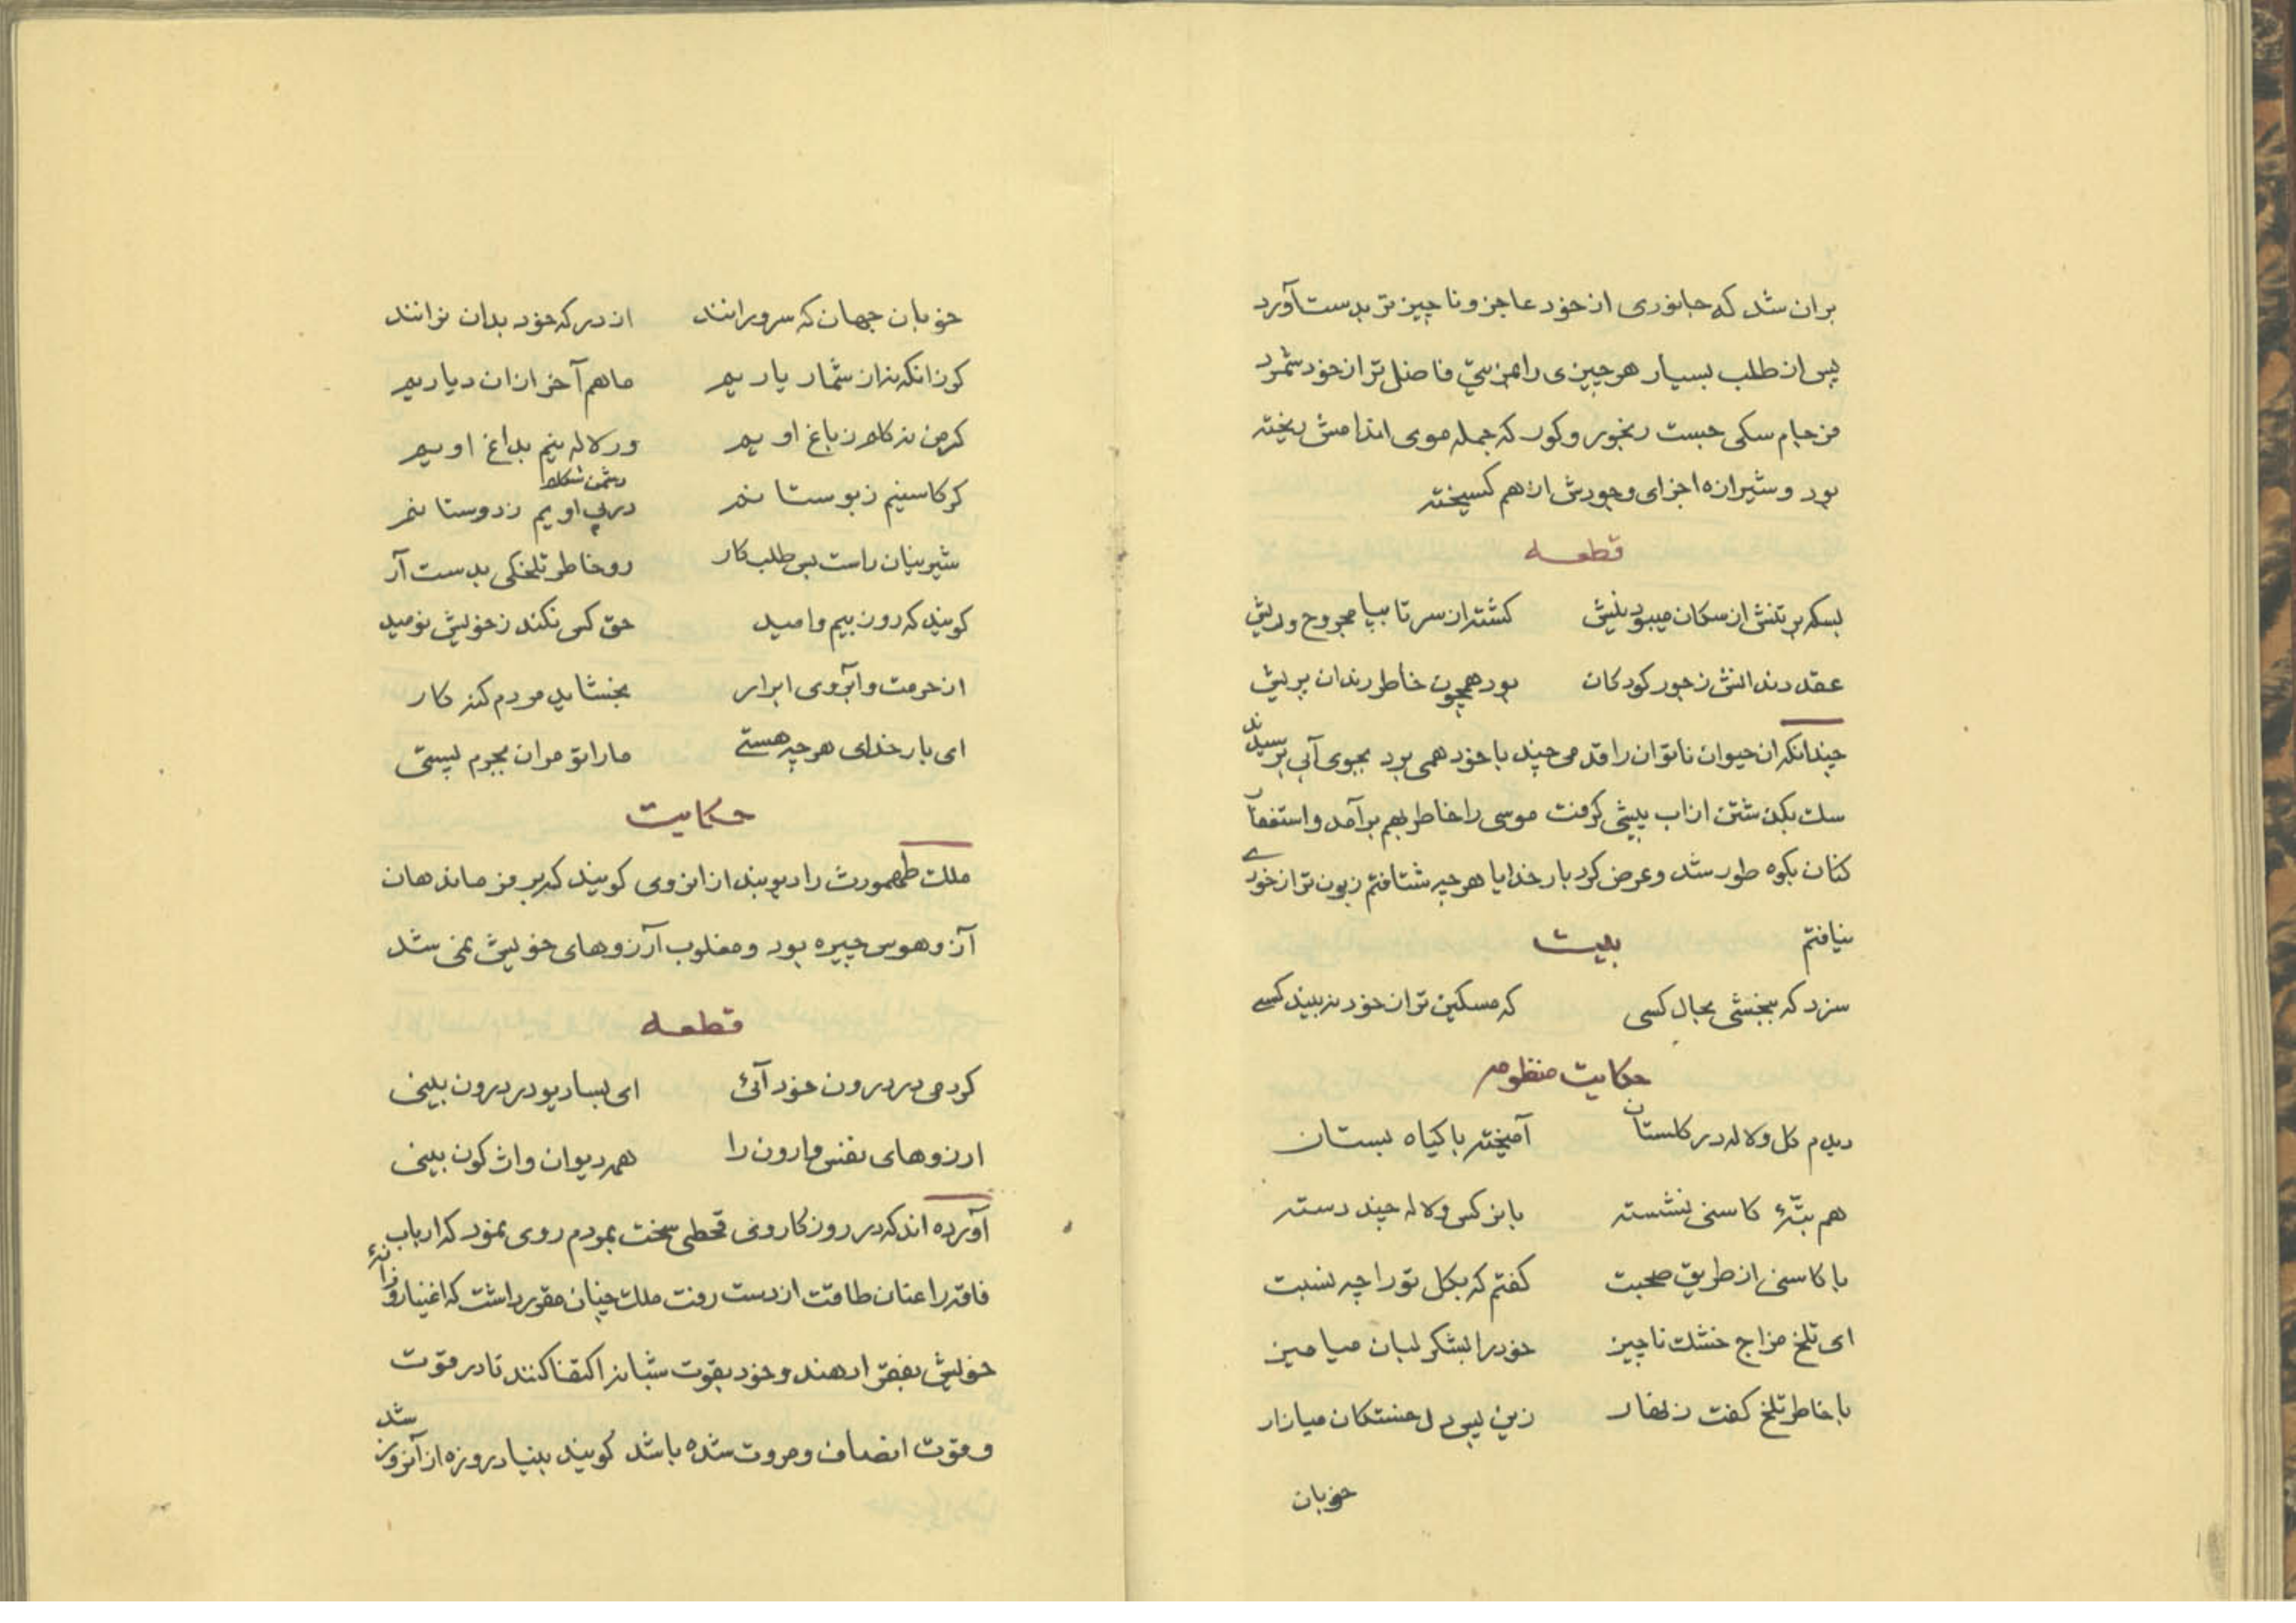 بران شد که جانوری از خود عاجز و ناچیز تر بدست آورد
پس از طلب بسیار هر چیزی را بمزیتی فاضل تر از خود شمرد
سکی جست رنجور و کور که جمله موی اندامش ریخته
بود و شیرازه اجزای وجودش از هم کسیخته
قطعه
بسکه بر تنش از سکان میبود نیش کشته از سر تا بپا مجروح و ریش
عقد دندانش ز جور کودکان بود همچون خاطر رندان پریش
چندانکه ان حیوان ناتوان را قدمی چند با خود همی برد بجوی آبی برسیدند
سک بکذشتن از اب پیشی کرفت موسی را خاطر بهم برآمد و استغفار
کنان بکوه طور شد و عرض کرد بار خدایا هر چه شتافتم زبون تر از خودی
نیافتم
بیت
سزد که ببخشی بحال کسی که مسکین تر از خود نه بیند کسی
حکایت منظومه
دیدم کل و لاله در کلستان آمیخته با کیاه بستان
هم بتّهٔ کاسنی نشسته با نرکس و لاله چند دسته
با کاسنی از طریق صحبت کفتم که بکل تو را چه نسبت
ای تلخ مزاج خشک ناچیز خود را بشکر لبان میامیز
با خاطر تلخ کفت زنهار زین پس دل خستکان میازار
خوبان
خوبان جهان که سرورانند از درکه خود بدان نرانند
کر زانکه نه از شمار یاریم ما هم آخر از ان دیاریم
کر من نه کلم ز باغ اویم ور لاله نیم بداغ اویم
کر کاسنیم ز بوستانم دشمن شکلم
در پی اویم ز دوستانم
شیرینیان راست بس طلبکار رو خاطر تلخکی بدست آر
کویند که روز بیم و امید حق کس نکند ز خویش نومید
از حرمت و آبروی ابرار بخشاید مردم کنه کار
ای بار خدای هر چه هستی ما را تو مران بجرم پستی
حکایت
ملک طهمورث را دیو بند از انروی کویند که بر فرماندهان
آز و هوس چیره بود و مغلوب آرزوهای خویش نمی شد
قطعه
کر دمی در درون خود آئی ای بسا دیو در درون بینی
ارزوهای نفس وارون را همه دیوان واژکون بینی
آورده اند که در روزکار وی قحطی سخت بمردم روی نمود که ارباب
فاقه را عنان طاقت از دست رفت ملک چنان مقرر داشت که اغنیا روزانهٔ
خویش بفقرا دهند و خود بقوت شبانه اکتفا کنند تا در قوت
و قوّت انصاف و مروت شده باشد کویند بنیاد روزه از آنروز شد